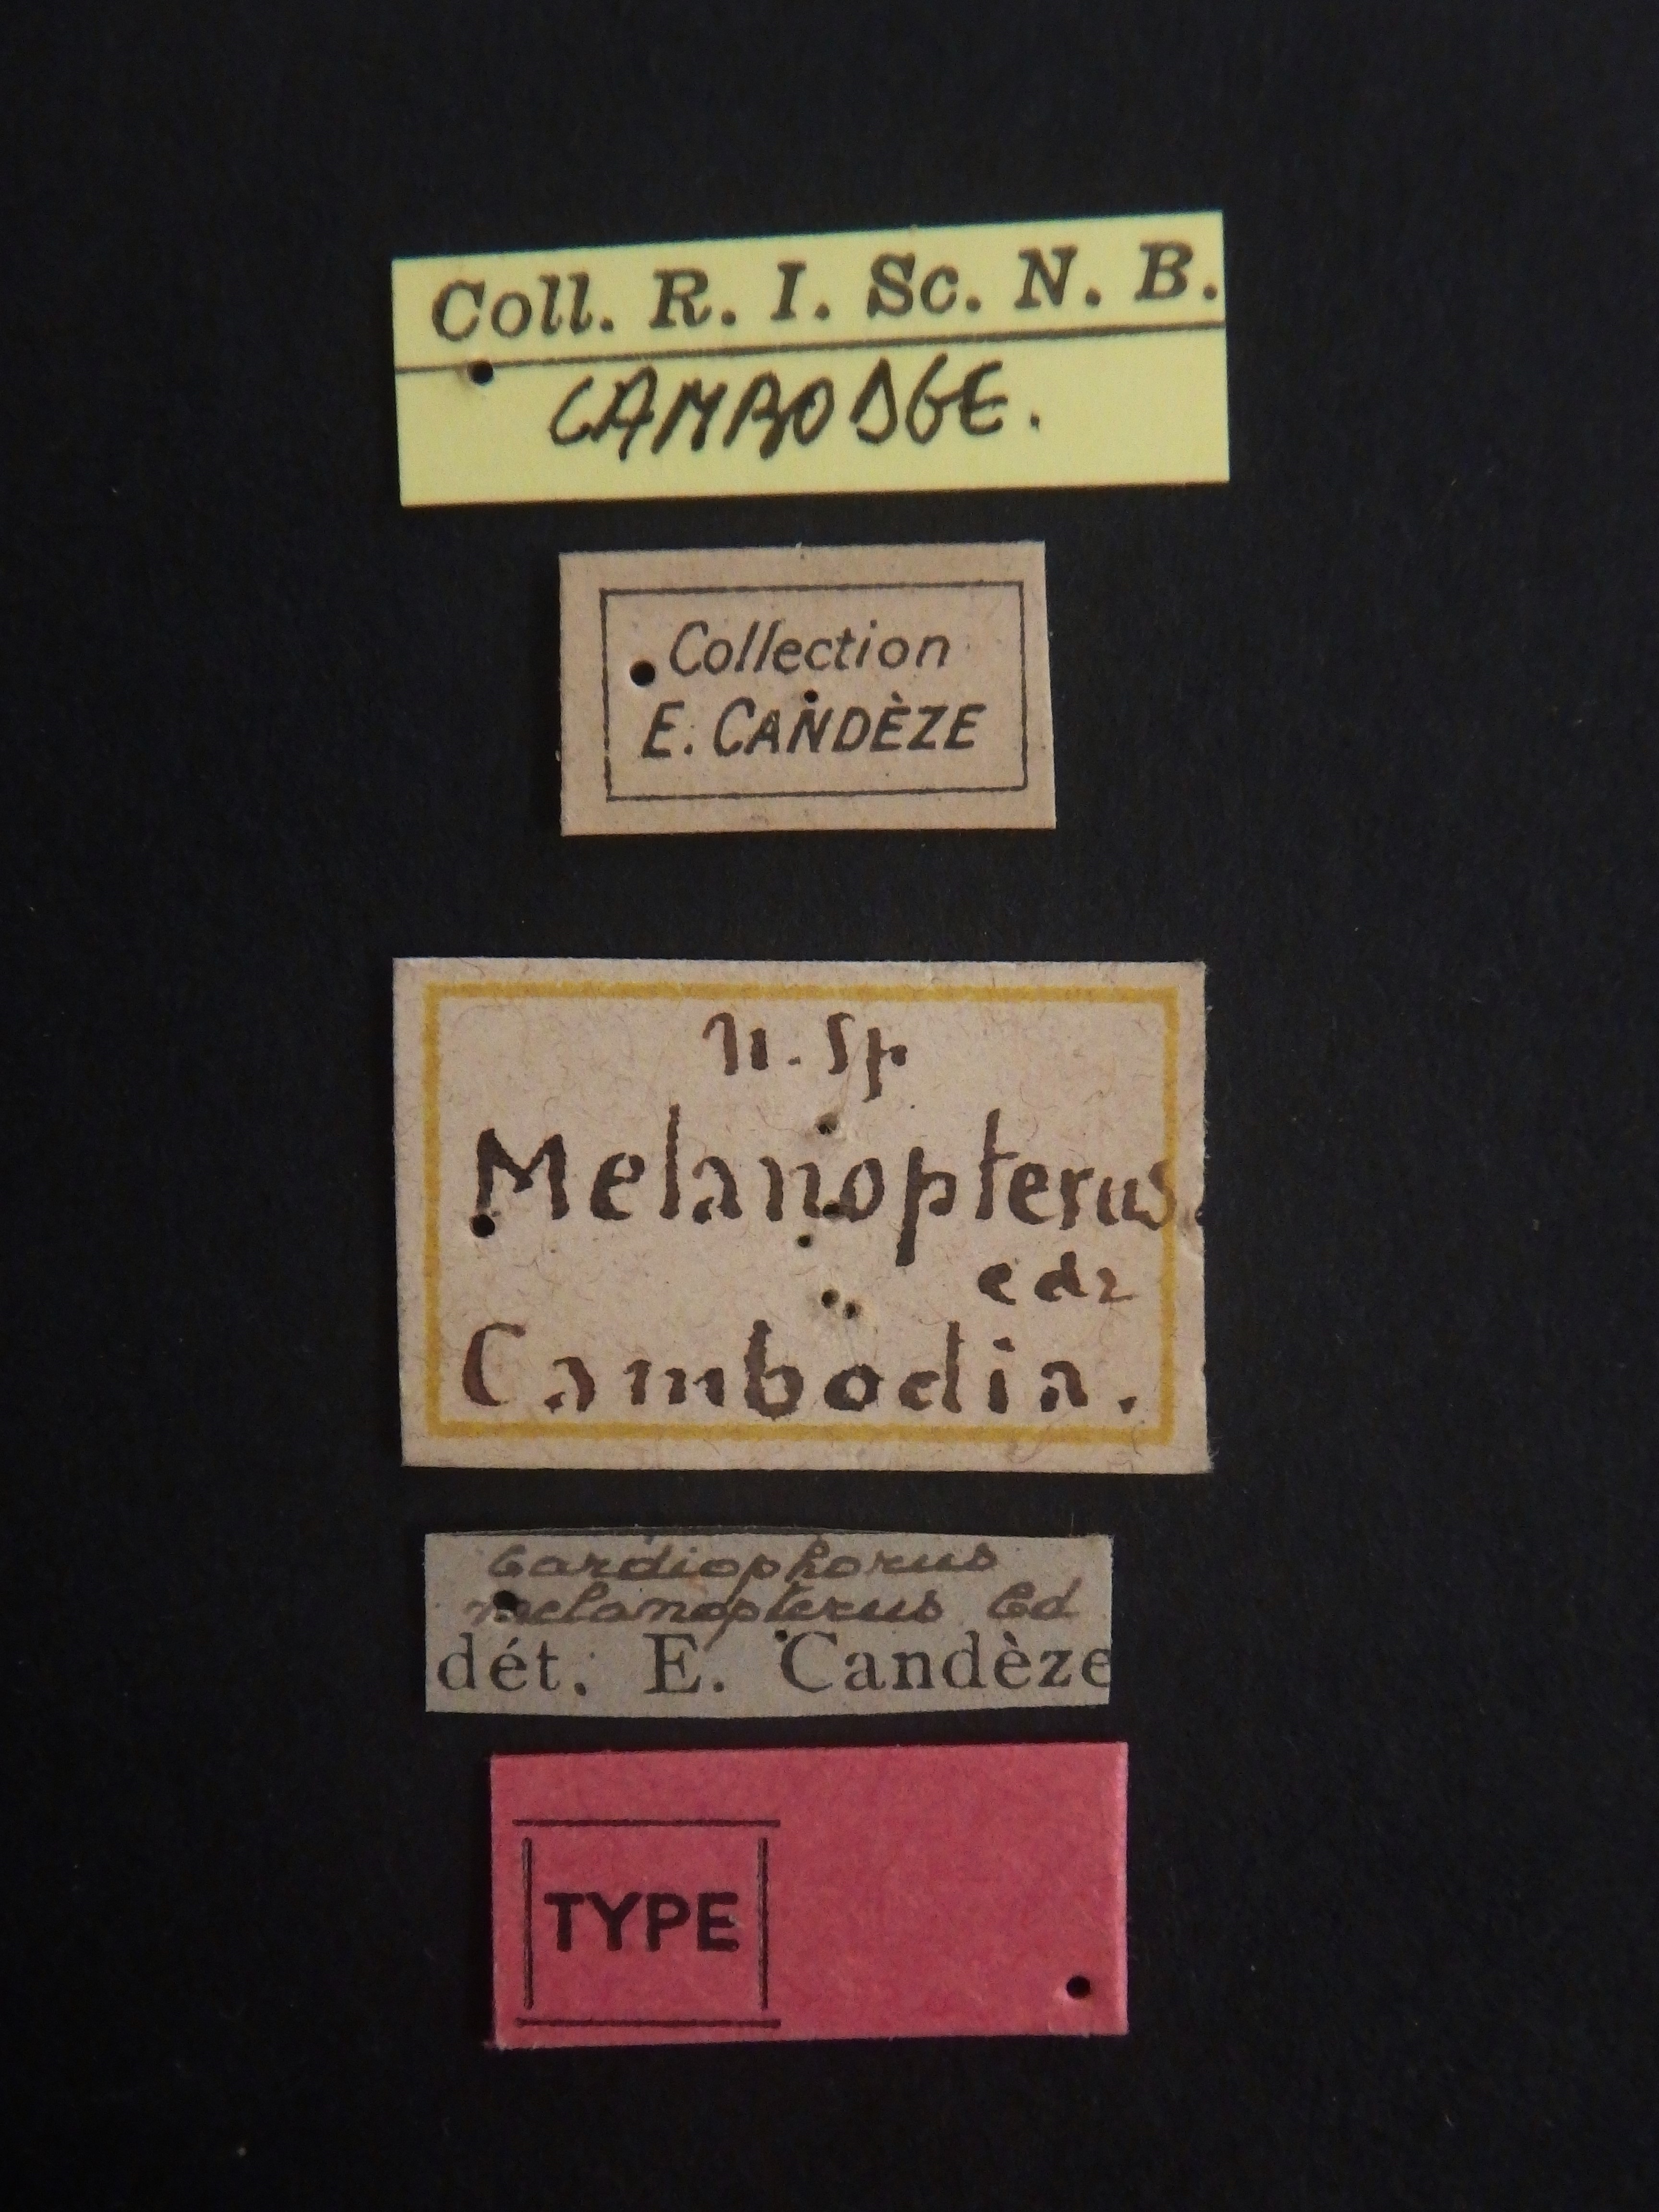 Coll. R. I. Sc. N. B.
CAMBODGE.
Collection
E. CANDÈZE
n. sp
Melanopterus.
cdz
Cambodia.
Cardiophorus
melanopterus Cd
dét. E. Candèze
TYPE